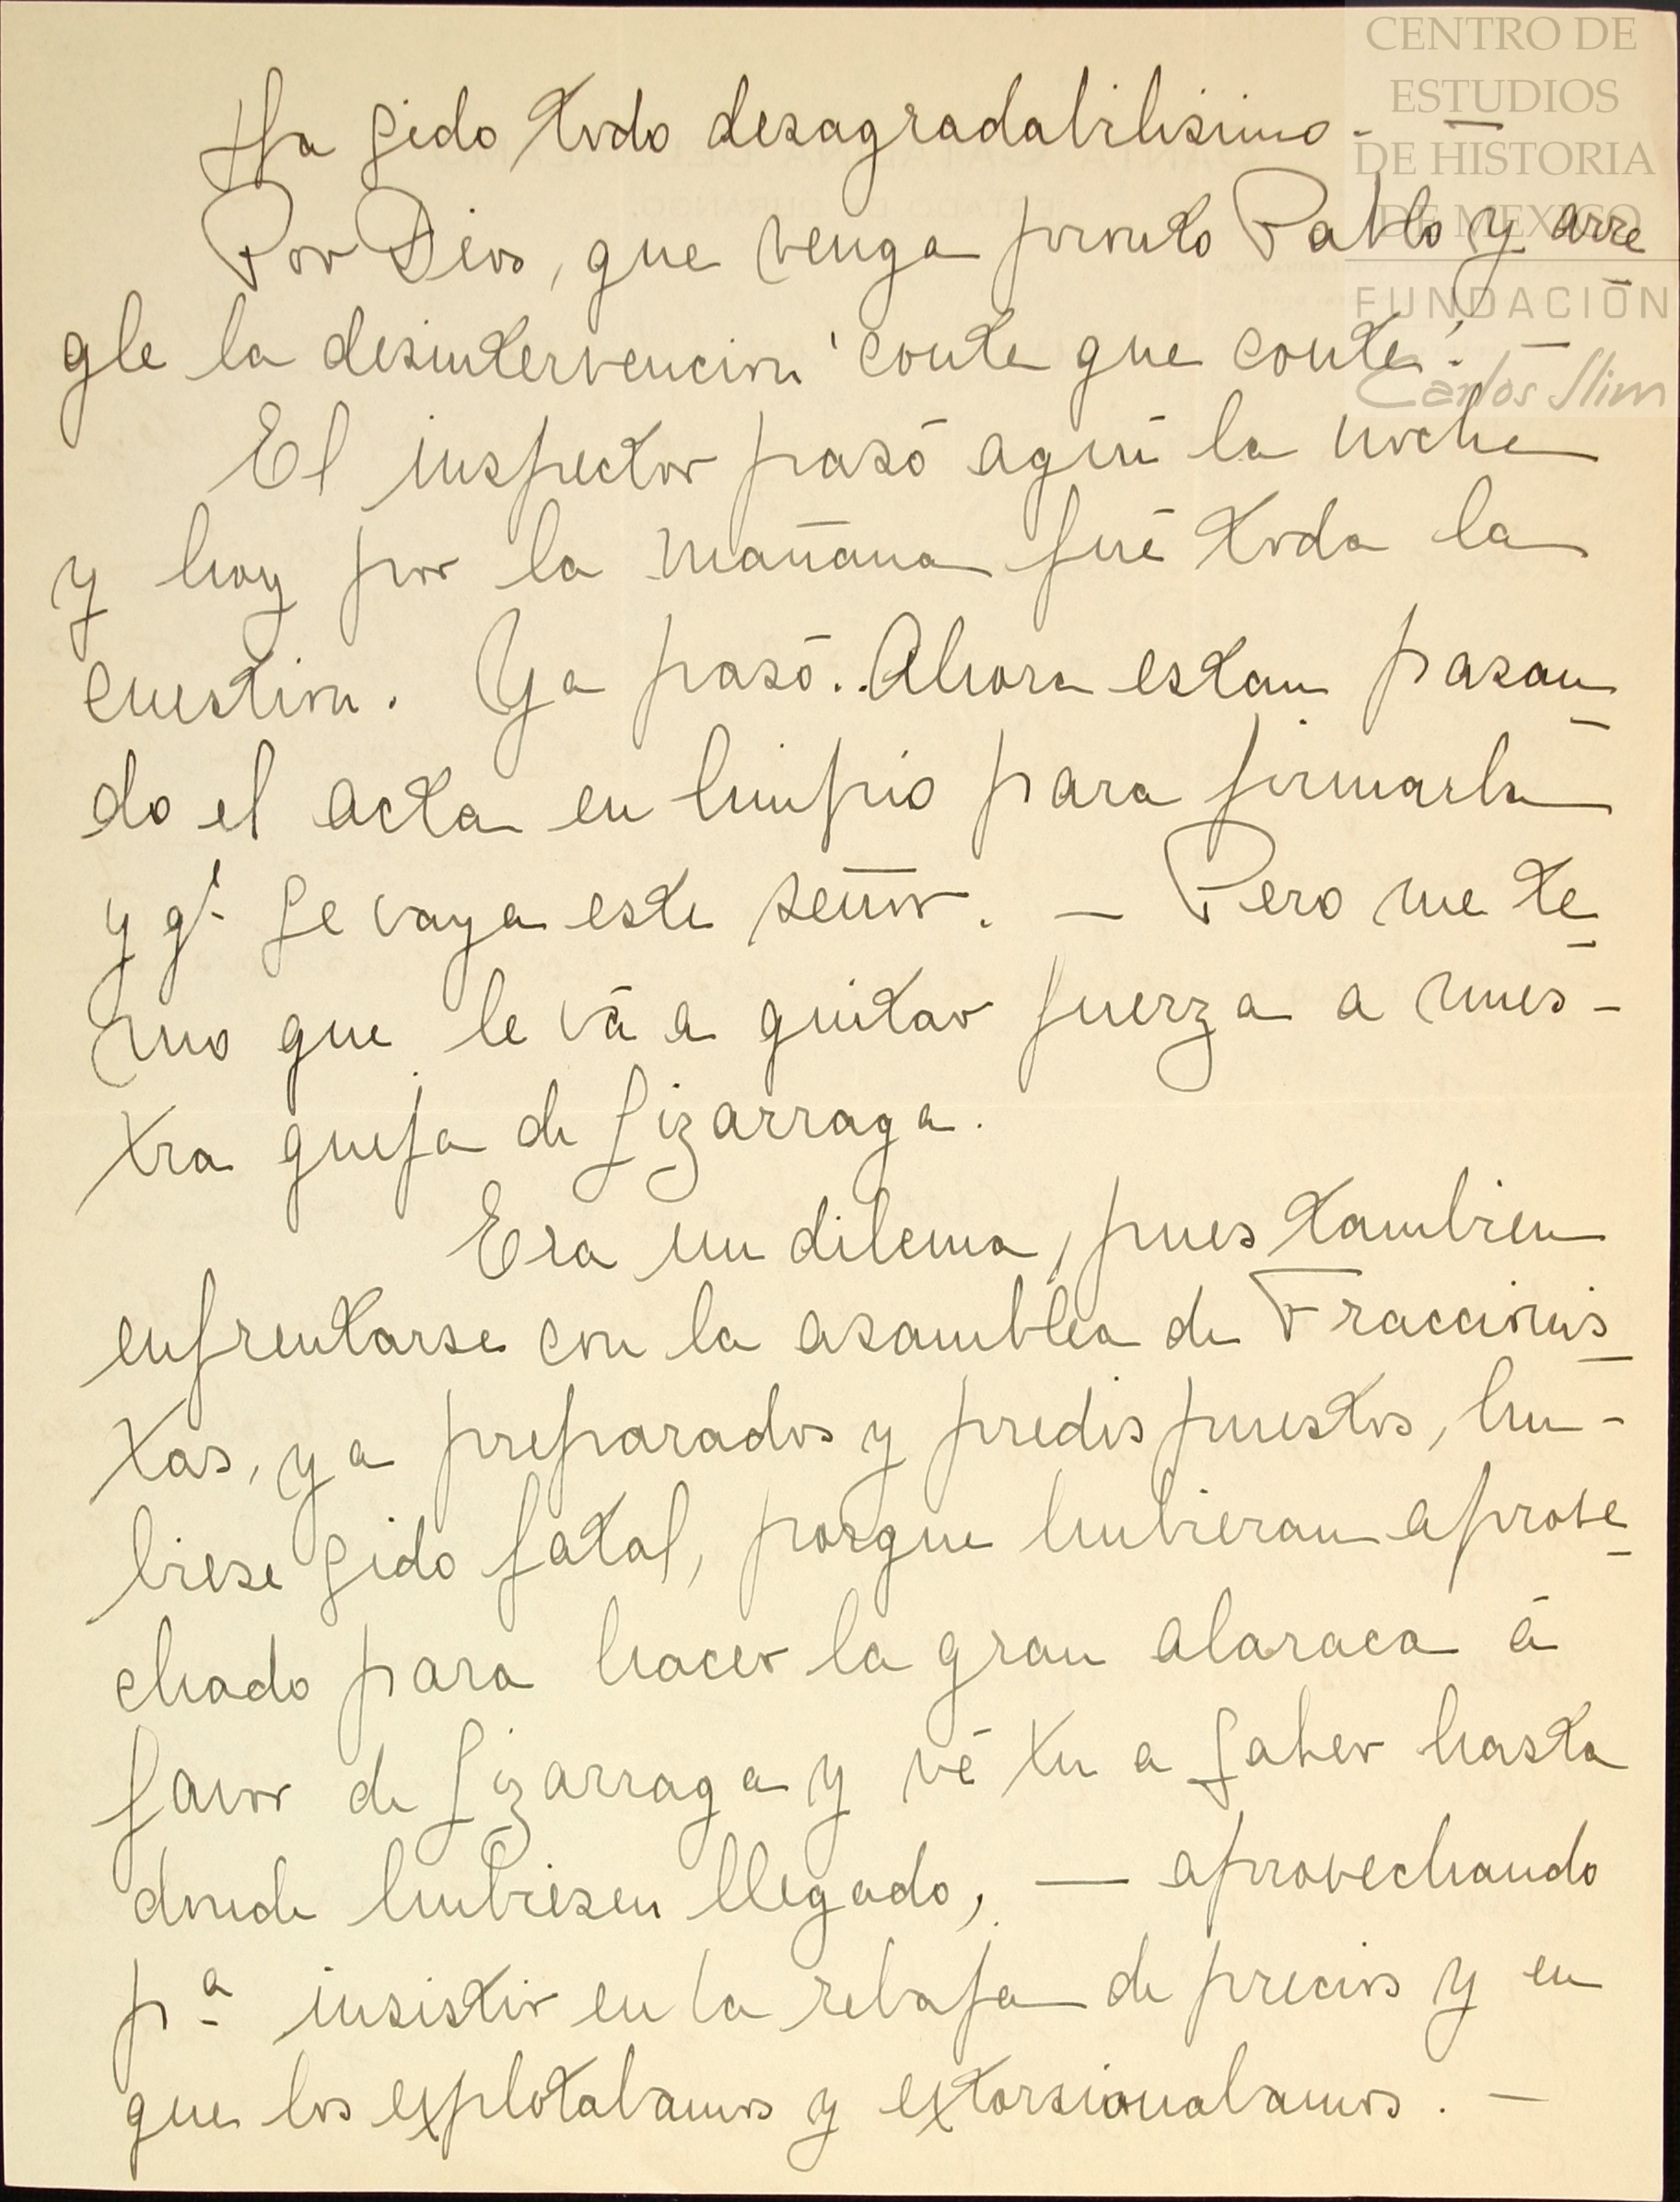 CENTRO DE
ESTUDIOS
DE HISTORIA
DE MEXICO
FUNDACIÓN
Carlos Slim
Ha sido todo desagradabilisimo. —
Por Dios, que venga pronto Pablo y arre
gle la desintervencion 'coute que coute'. —
El inspector pasó aquí la noche
y hoy por la mañana fué toda la
cuestion. Ya pasó.. Ahora estan pasan
do el acta en limpio para firmarla
y qe. se vaya este señor. — Pero me te
mo que le vá a quitar fuerza a nues-
tra queja de Lizarraga.
Era un dilema, pues tambien
enfrentarse con la asamblea de Fraccionis
tas, ya preparados y predispuestos, hu-
biese sido fatal, porque hubieran aprove
chado para hacer la gran alaraca á
favor de Lizarraga y vé tu a saber hasta
donde hubiesen llegado, — aprovechando
pª insistir en la rebaja de precios y en
que los explotabamos y extorsionabamos. —